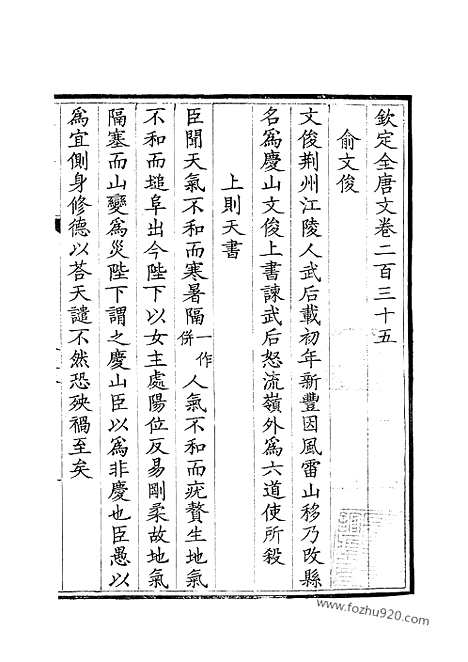 欽定全唐文卷二百三十五
俞文俊
文俊荆州江陵人武后載初年新豐因風雷山移乃改縣
名為慶山文俊上書諫武后怒流嶺外為六道使所殺
上則天書
臣聞天氣不和而寒暑隔一作併人氣不和而疣贅生地氣
不和而塠阜出今陛下以女主處陽位反易剛柔故地氣
隔塞而山變為災陛下謂之慶山臣以為非慶也臣愚以
為宜側身修德以荅天譴不然恐殃禍至矣
www.fozhu920.com